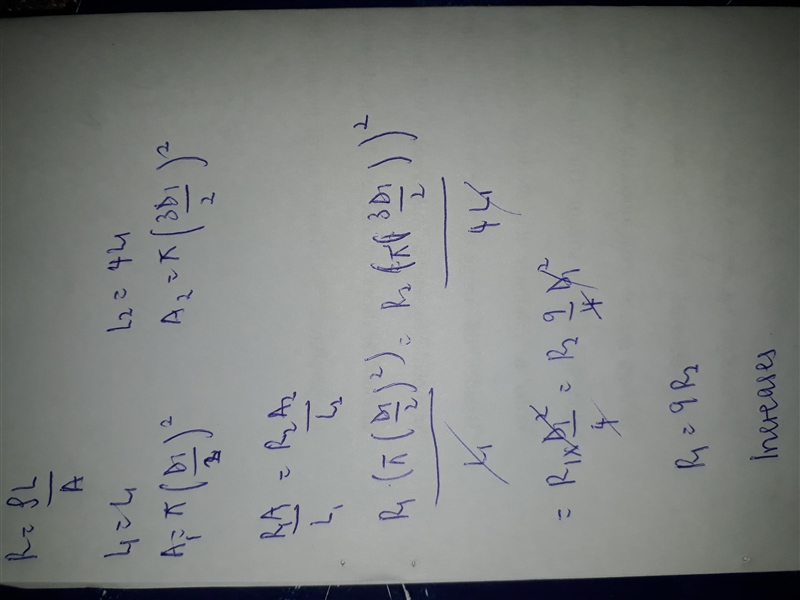 R = ρL/A
L1 = L1 L2 = 4L1
A1 = π(D1/2)² A2 = π(3D1/2)²
R1A/L1 = R2A2/L2
R1·(π(D1/2)²)/L1 = R2(π(3D1/2))²/4L1
= R1 x D1²/4 = R2 9D1²/4
R1 = 9R2
Increases